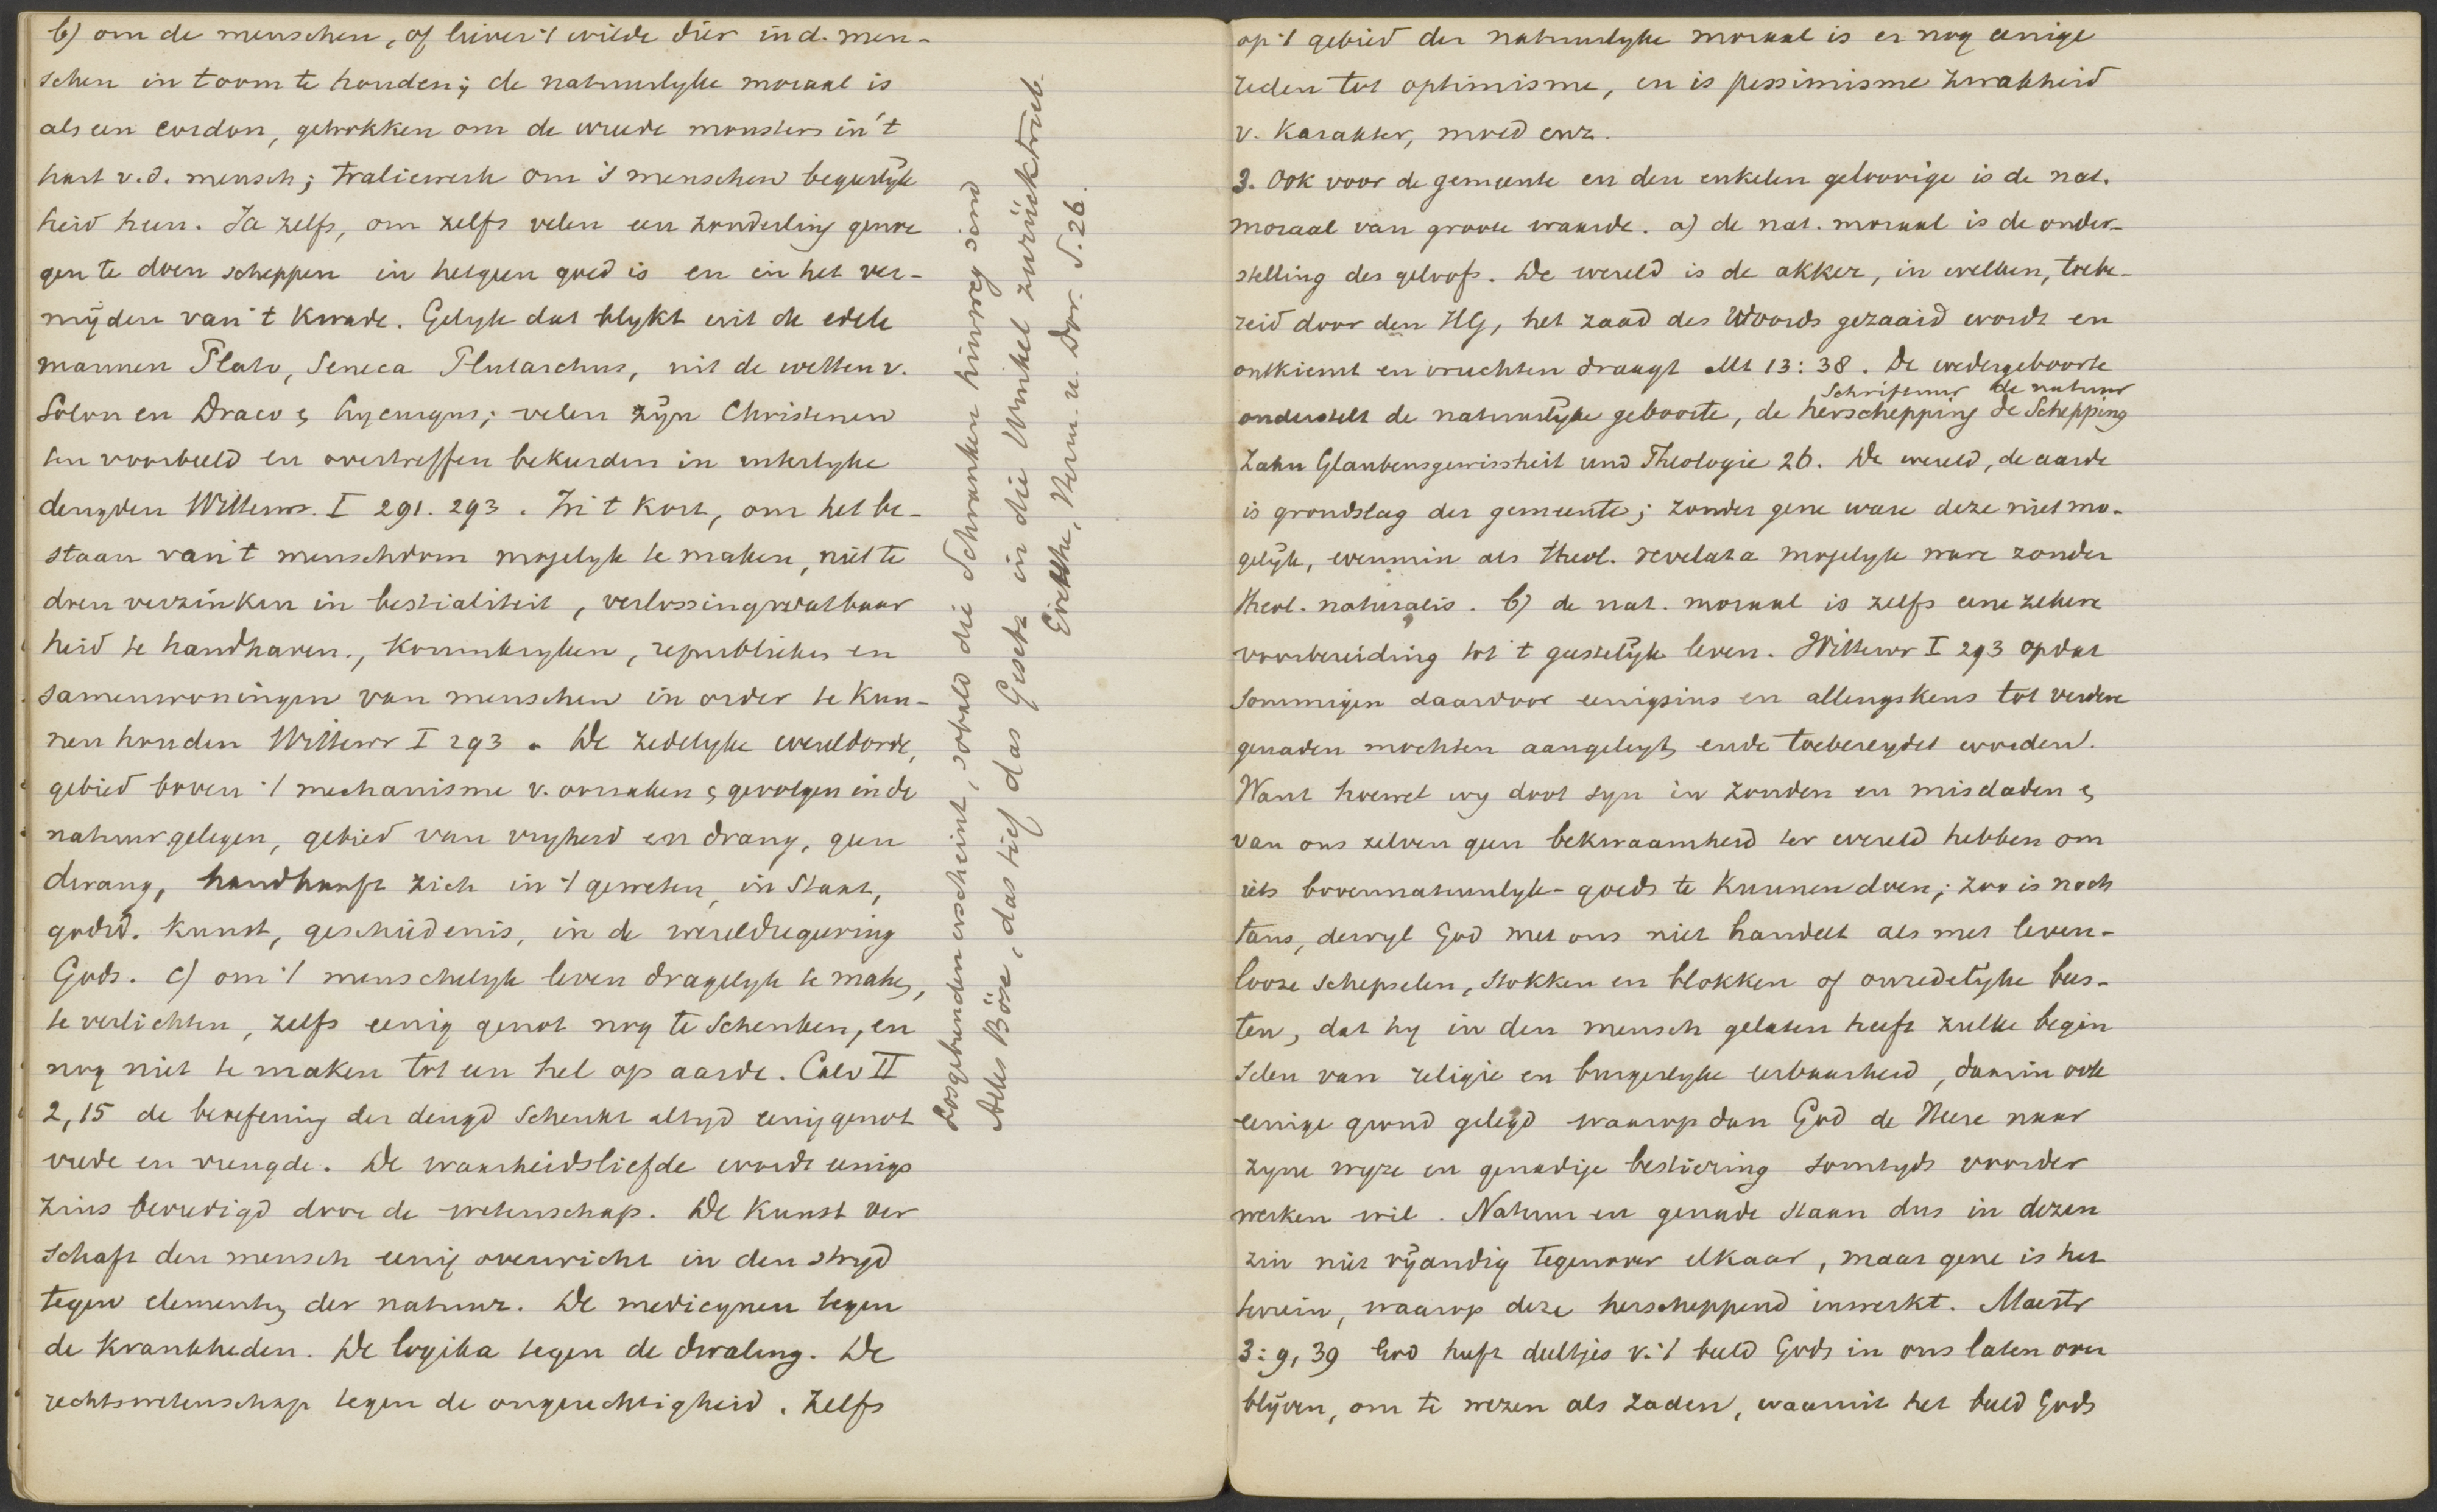 b) om de menschen, of liever 't wilde dier in d. men-
schen in toom te houden; de natuurlyke moraal is
als een cordon, getrokken om de wreede monsters in 't
hart v.d. mensch; traliewerk om 's menschen begeerlyk
heid heen. Ja zelfs, om zelfs velen een zonderling genoe
gen te doen scheppen in hetgeen goed is en in het ver-
mijden van 't kwade. Gelyk dat blykt uit de edele
mannen Plato, Seneca Plutarchus, uit de wetten v.
Solon en Draco & Lycurgus; velen zyn Christenen
ten voorbeeld en overtreffen bekeerden in uiterlyke
deugden Wittewr. I 291. 293. In 't kort, om het be-
staan van 't menschdom mogelyk te maken, niet te
doen verzinken in bestialiteit, verlossingsvatbaar
heid te handhaven, koninkryken, republieken en
samenwoningen van menschen in order te kun-
nen houden Wittewr I 293. De zedelyke wereldorde,
gebied boven 't mechanisme v. oorzaken & gevolgen in de
natuur gelegen, gebied van vryheid en drang, geen
dwang, handhaaft zich in 't geweten, in Staat,
godsd. kunst, geschiedenis, in de wereldregeering
Gods. c) om 't menschelyk leven dragelyk te maken,
te verlichten, zelfs eenig genot nog te schenken, en
nog niet te maken tot een hel op aarde. Calv II
2,15 de beoefening der deugd schenkt altyd eenig genot
vrede en vreugde. De waarheidsliefde wordt eenigs
zins bevredigd door de wetenschap. De kunst ver
schaft den mensch eenig overwicht in den stryd
tegen elementen der natuur. De medicynen tegen
de krankheden. De logika tegen de dwaling. De
rechtswetenschap tegen de ongerechtigheid. Zelfs
Losgebunden erscheint, sobald die Schranken hinweg sind
Alles Böse, das tief das Gesetz in die Winkel zurücktrieb
Goethe, Herm. u. Dor. S. 26.
op 't gebied der natuurlyke moraal is er nog eenige
reden tot optimisme, en is pessimisme zwakheid
v. karakter, moed enz.
3. Ook voor de gemeente en den enkelen geloovige is de nat.
moraal van groote waarde. a) de nat. moraal is de onder-
stelling des geloofs. De wereld is de akker, in welken, toebe-
reid door den HG, het zaad des Woords gezaaid wordt en
ontkiemt en vruchten draagt Mt 13:38. De wedergeboorte
Schriftuur de natuur
onderstelt de natuurlyke geboorte, de herschepping de Schepping
Zahn Glaubensgewissheit und Theologie 26. De wereld, de aarde
is grondslag der gemeente; zonder gene ware deze niet mo-
gelyk, evenmin als theol. revelata mogelyk ware zonder
theol. naturalis. b) de nat. moraal is zelfs eene zekere
voorbereiding tot 't geestelyk leven. Wittewr I 293 opdat
sommigen daardoor eenigsins en allengskens tot verdere
genaden mochten aangeleyt, ende toebereydet worden.
Want hoewel wy doot syn in zonden en misdaden &
van ons zelven geen bekwaamheid ter wereld hebben om
iets bovennatuurlyk-goeds te kunnen doen; zoo is noch
tans, dewyl God met ons niet handelt als met leven-
looze schepselen, stokken en blokken of onredelyke bees-
ten, dat hy in den mensch gelaten heeft zulke begin
selen van religie en burgerlyke eerbaarheid, daarin ook
eenige grond gelegd waarop dan God de Heere naar
zyne wyze en genadige bestiering somtyds voorder
werken wil. Natuur en genade staan dus in dezen
zin niet vyandig tegenover elkaar, maar gene is het
terrein, waarop deze herscheppend inwerkt. Maestr
3:9, 39 God heeft deeltjes v. 't beeld Gods in ons laten over
blyven, om te wezen als zaden, waaruit het beeld Gods